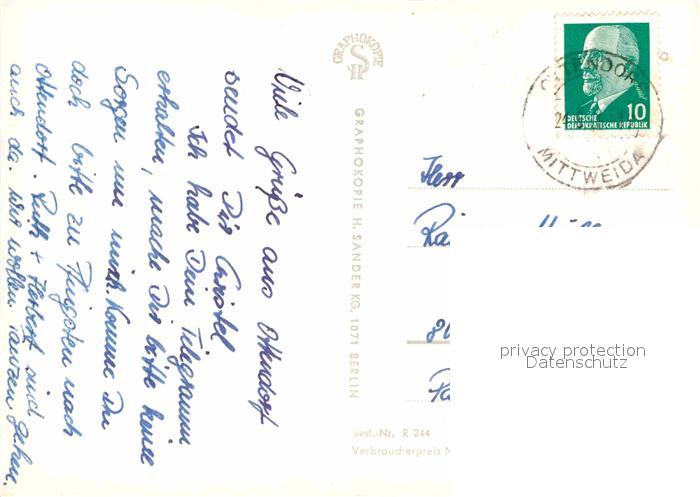 Viele Grüße aus Ottendorf
sendet Dir Christel
Ich habe Dein Telegramm
erhalten, mache Dir bitte keine
Sorgen um mich. Komme Du
doch bitte zu Pfingsten nach
Ottendorf. Ruth + Herbert sind
auch da. Wir wollen tanzen gehen.
GRAPHOKOPIE
GRAPHOKOPIE H. SANDER KG, 1071 BERLIN
10
DEUTSCHE
DEMOKRATISCHE REPUBLIK
MITTWEIDA
Herr
privacy protection
Datenschutz
Best.-Nr. R 244
Verbraucherpreis